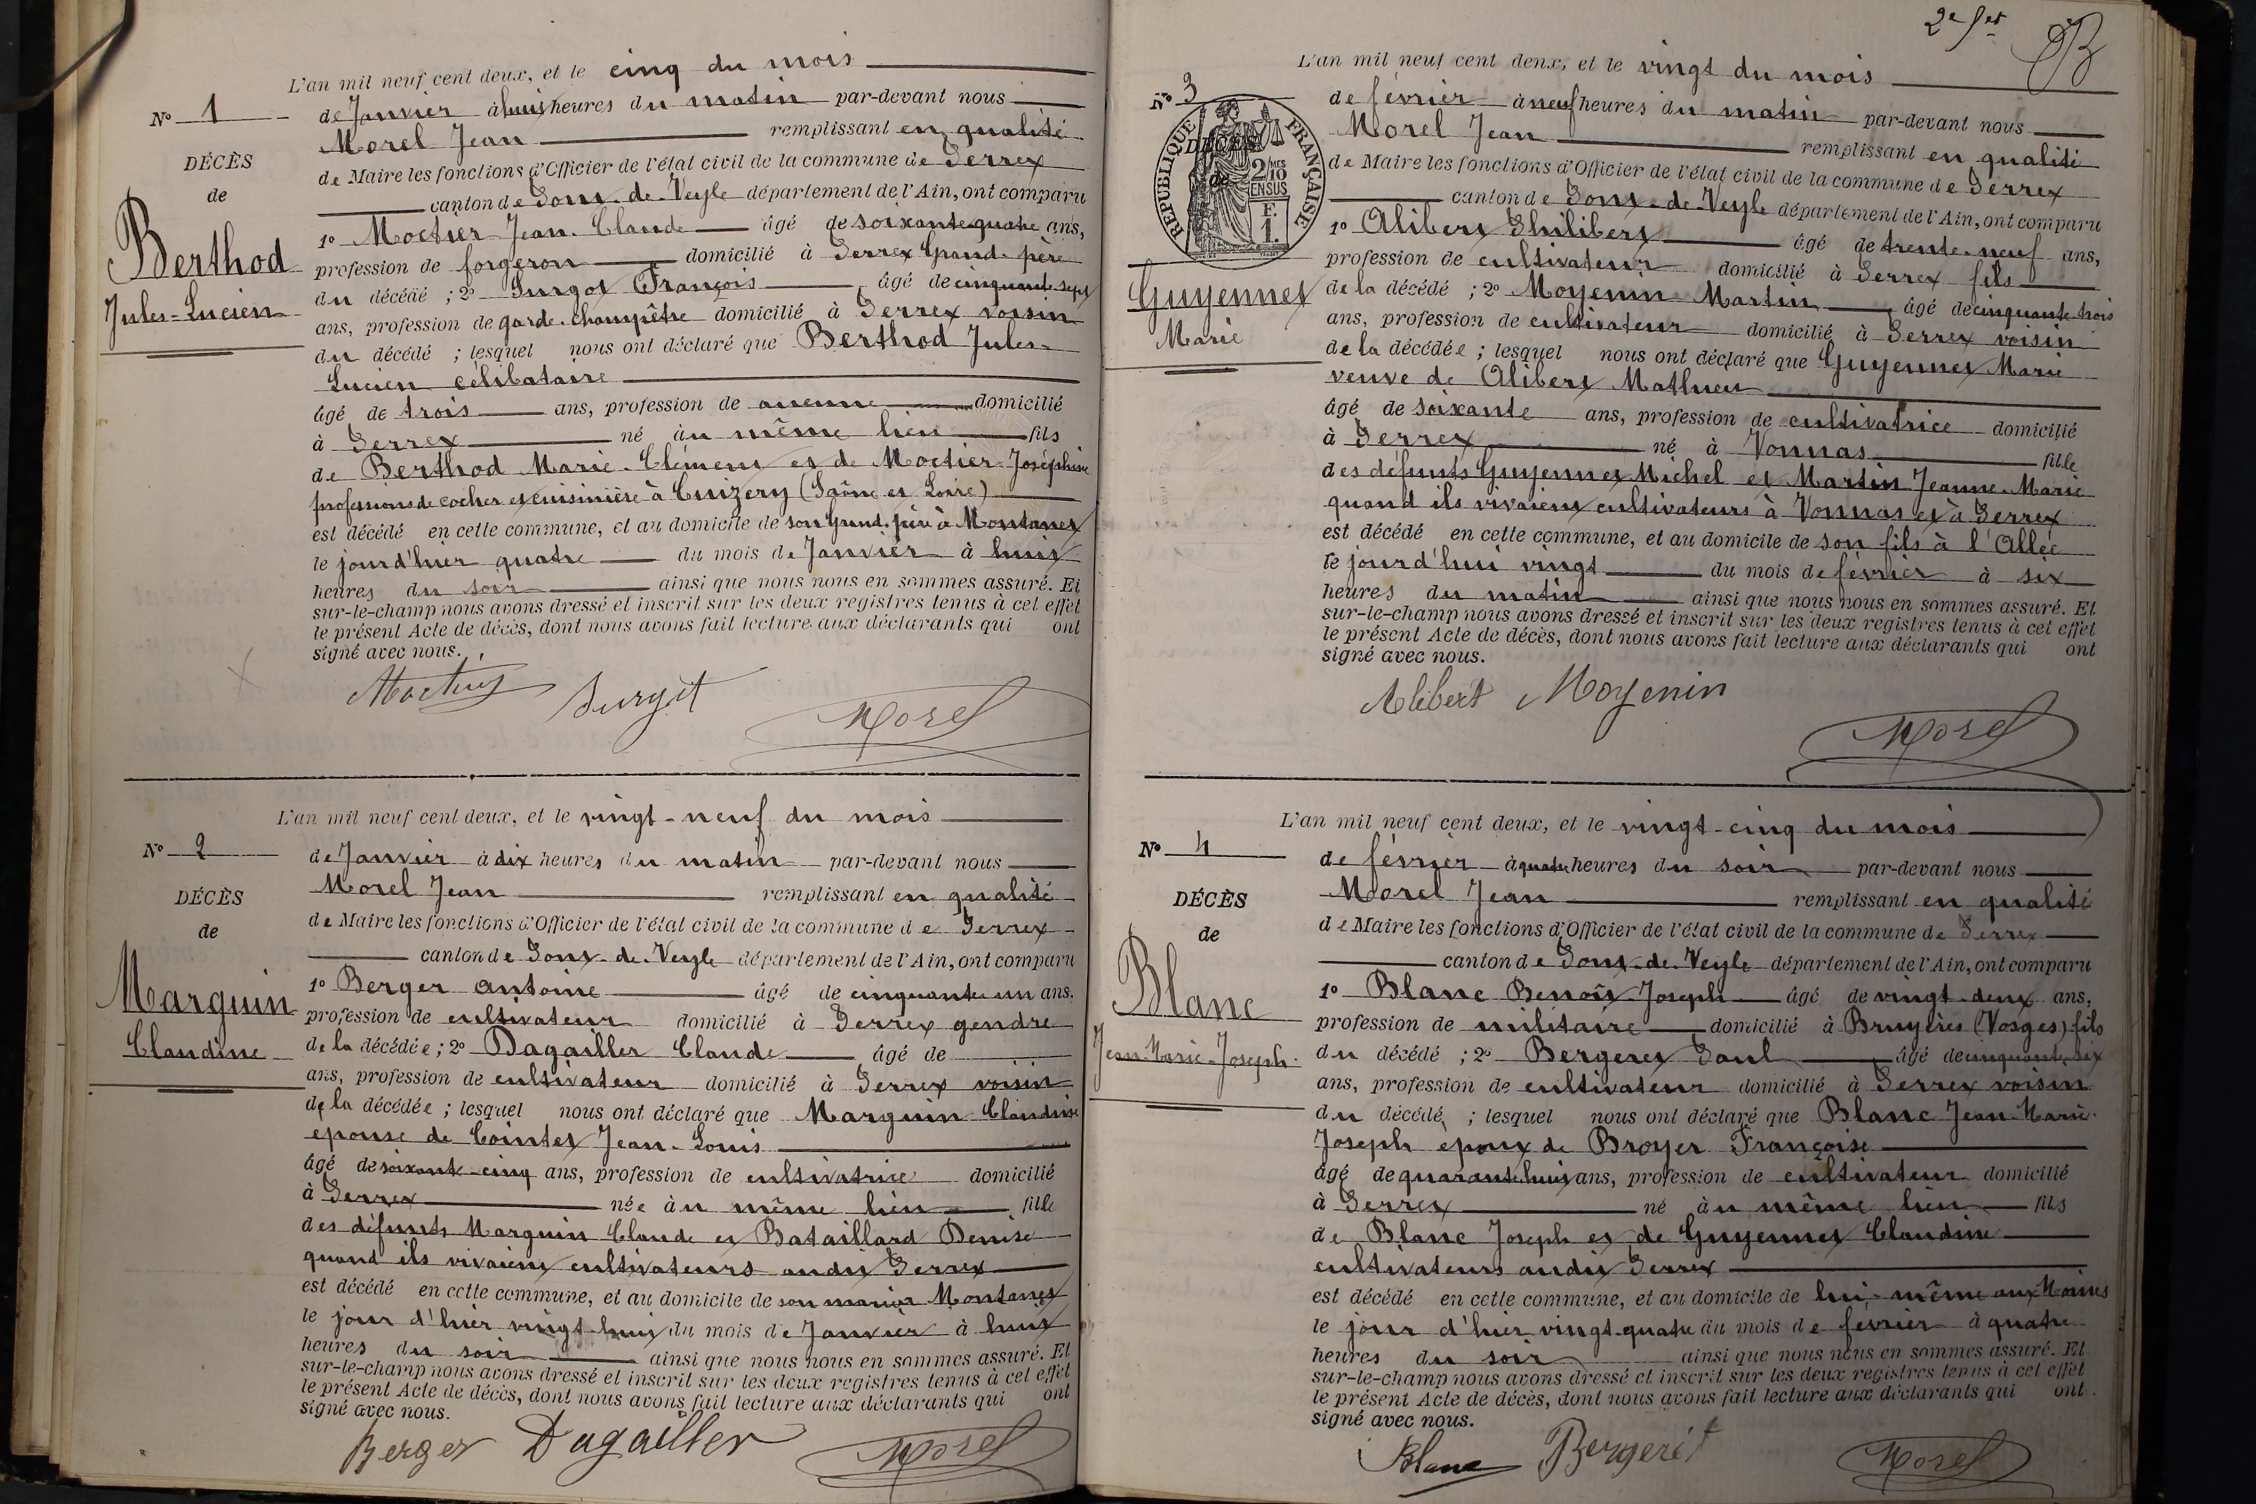 L'an mil neuf cent deux, et le cinq du mois
de Janvier à huit heures du matin par-devant nous
Morel Jean remplissant en qualité
de Maire les fonctions d'Officier de l'état civil de la commune de Perrex
canton de Pont-de-Veyle département de l'Ain, ont comparu
1º Moctier Jean-Claude âgé de soixante-quatre ans,
profession de forgeron domicilié à Perrex Grand-père
du décédé ; 2º Surgot François âgé de cinquante-sept
ans, profession de garde-champêtre domicilié à Perrex voisin
du décédé ; lesquel nous ont déclaré que Berthod Jules-
Lucien célibataire
âgé de trois ans, profession de aucune domicilié
à Perrex né au même lieu fils
de Berthod Marie-Clément et de Moctier Joséphine
professions de cocher et cuisinière à Cuizery (Saône et Loire)
est décédé en cette commune, et au domicile de son Grand-père à Montanet
le jour d'hier quatre du mois de Janvier à huit
heures du soir ainsi que nous nous en sommes assuré. Et
sur-le-champ nous avons dressé et inscrit sur les deux registres tenus à cet effet
le présent Acte de décès, dont nous avons fait lecture aux déclarants qui ont
signé avec nous.
Nº 1
DÉCÈS
de
Berthod
Jules-Lucien
Moctier Surgot
Morel
L'an mil neuf cent deux, et le vingt-neuf du mois
de Janvier à dix heures du matin par-devant nous
Morel Jean remplissant en qualité
de Maire les fonctions d'Officier de l'état civil de la commune de Perrex
canton de Pont-de-Veyle département de l'Ain, ont comparu
1º Berger Antoine âgé de cinquante-un ans,
profession de cultivateur domicilié à Perrex gendre
de la décédée ; 2º Dagailler Claude âgé de
ans, profession de cultivateur domicilié à Perrex voisin
de la décédée ; lesquel nous ont déclaré que Marguin Claudine
epouse de Cointet Jean-Louis
âgé de soixante-cinq ans, profession de cultivatrice domicilié
à Perrex née au même lieu fille
des défunts Marguin Claude et Bataillard Denise
quand ils vivaient cultivateurs audit Perrex
est décédé en cette commune, et au domicile de son mari à Montanet
le jour d'hier vingt-huit du mois de Janvier à huit
heures du soir ainsi que nous nous en sommes assuré. Et
sur-le-champ nous avons dressé et inscrit sur les deux registres tenus à cet effet
le présent Acte de décès, dont nous avons fait lecture aux déclarants qui ont
signé avec nous.
Nº 2
DÉCÈS
de
Marguin
Claudine
Berger Dagailler Morel
L'an mil neuf cent deux, et le vingt du mois
de février à neuf heures du matin par-devant nous
Morel Jean remplissant en qualité
de Maire les fonctions d'Officier de l'état civil de la commune de Perrex
canton de Pont-de-Veyle département de l'Ain, ont comparu
1º Alibert Philibert âgé de trente-neuf ans,
profession de cultivateur domicilié à Perrex fils
de la décédé ; 2º Moyenin Martin âgé de cinquante-trois
ans, profession de cultivateur domicilié à Perrex voisin
de la décédée ; lesquel nous ont déclaré que Guyennet Marie
veuve de Alibert Mathieu
âgé de soixante ans, profession de cultivatrice domicilié
à Perrex né à Vonnas fille
des défunts Guyennet Michel et Martin Jeanne-Marie
quand ils vivaient cultivateurs à Vonnas et à Perrex
est décédé en cette commune, et au domicile de son fils à l'Allée
le jour d'hui vingt du mois de février à six
heures du matin ainsi que nous nous en sommes assuré. Et
sur-le-champ nous avons dressé et inscrit sur les deux registres tenus à cet effet
le présent Acte de décès, dont nous avons fait lecture aux déclarants qui ont
signé avec nous.
Nº 3
DÉCÈS
de
RÉPUBLIQUE FRANÇAISE
2/10 MES
EN SUS
F.
1.
Guyennet
Marie
Alibert Moyenin
Morel
L'an mil neuf cent deux, et le vingt-cinq du mois
de février à quatre heures du soir par-devant nous
Morel Jean remplissant en qualité
de Maire les fonctions d'Officier de l'état civil de la commune de Perrex
canton de Pont-de-Veyle département de l'Ain, ont comparu
1º Blanc Benoît-Joseph âgé de vingt-deux ans,
profession de militaire domicilié à Bruyères (Vosges) fils
du décédé ; 2º Bergeret Paul âgé de cinquante-six
ans, profession de cultivateur domicilié à Perrex voisin
du décédé ; lesquel nous ont déclaré que Blanc Jean-Marie-
Joseph epoux de Broyer Françoise
âgé de quarante-huit ans, profession de cultivateur domicilié
à Perrex né au même lieu fils
de Blanc Joseph et de Guyennet Claudine
cultivateurs audit Perrex
est décédé en cette commune, et au domicile de lui-même aux Moines
le jour d'hier vingt-quatre du mois de février à quatre
heures du soir ainsi que nous nous en sommes assuré. Et
sur-le-champ nous avons dressé et inscrit sur les deux registres tenus à cet effet
le présent Acte de décès, dont nous avons fait lecture aux déclarants qui ont
signé avec nous.
Nº 4
DÉCÈS
de
Blanc
Jean-Marie-Joseph
Blanc Bergeret Morel